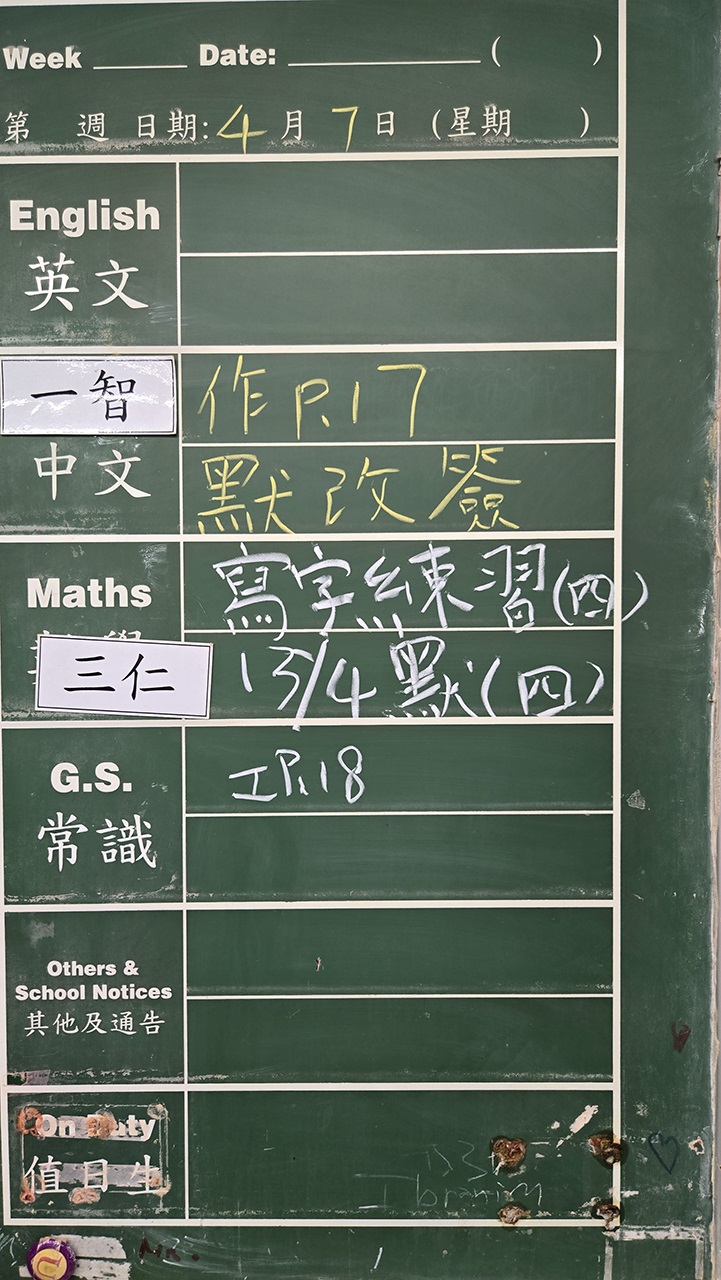 Week ____ Date: ____________ ( )
第 週 日期:4月7日 (星期 )
English
英文
一智
作 P.17
中文
默改簽
Maths
寫字練習(四)
三仁
13/4 默(四)
G.S.
工P.18
常識
Others &
School Notices
其他及通告
On Duty
值日生